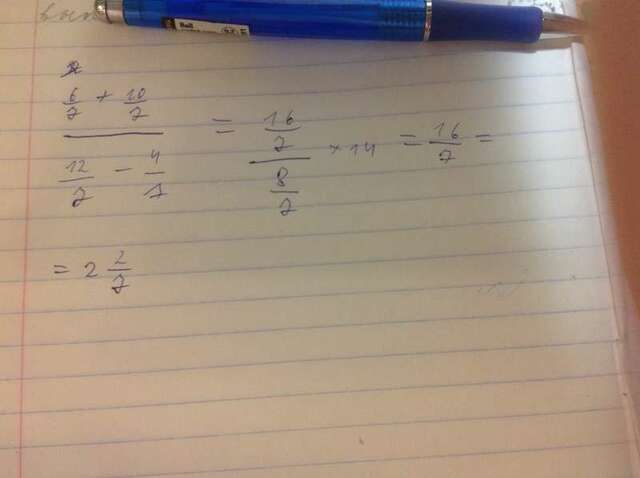 6/7 + 10/7 / 12/7 - 4/7 = 16/7 / 8/7 * 14 = 16/7 =
= 2 2/7